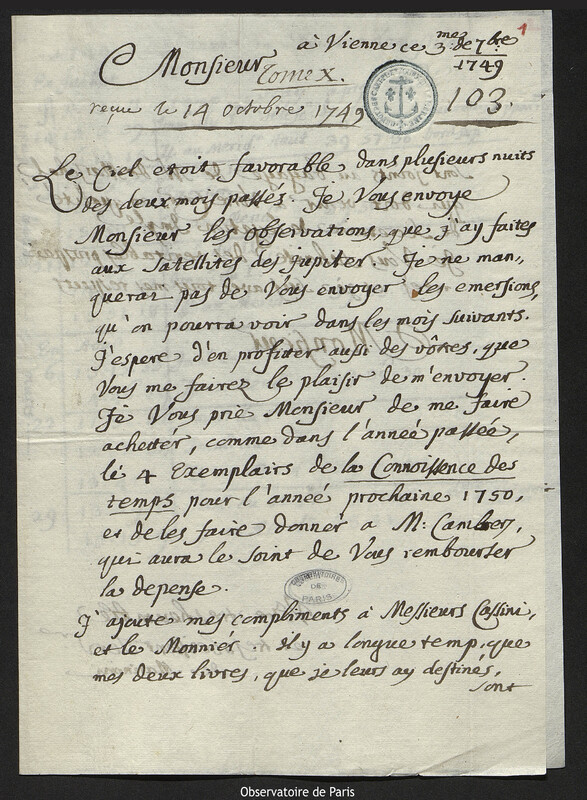 1
à Vienne ce 3me de 7bre
1749
Monsieur
Tome X.
103.
reçue le 14 octobre 1749
Le Ciel etoit favorable dans plusieurs nuits
des deux mois passés. Je Vous envoye
Monsieur les observations, que j'ay faites
aux Satellites des jupiter. Je ne man,
querai pas de Vous envoyer les emersions,
qu'on pourra voir dans les mois suivants.
J'espere d'en profiter aussi des vôtres, que
Vous me fairez le plaisir de m'envoyer.
Je Vous prie Monsieur de me faire
achettér, comme dans l'année passée,
lé 4 Exemplairs de la Connoissence des
temps pour l'année prochaine 1750,
et de les faire donnér a M:
qui aura le soint de Vous remboursér
la depense.
OBSERVATOIRE
DE
PARIS
J'ajoute mes compliments à Messieurs Cassini,
et le Monniér. il y a longue temp, que
mes deux livres, que je leurs ay destinés,
sont
Observatoire de Paris